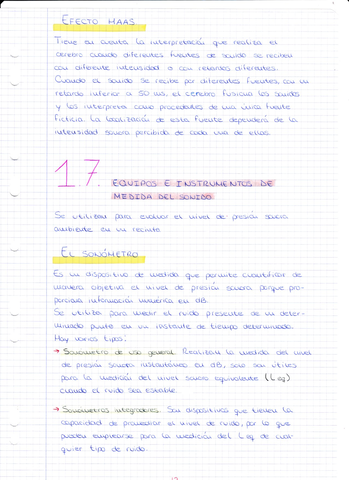 EFECTO HAAS
Tiene en cuenta la interpretación que realiza el
cerebro cuando diferentes fuentes de sonido se reciben
con diferente intensidad o con retardos diferentes.
Cuando el sonido se recibe por diferentes fuentes, con un
retardo inferior a 50 ms. el cerebro fusiona los sonidos
y los interpreta como procedentes de una única fuente
ficticia. La localización de esta fuente dependerá de la
intensidad sonora percibida de cada una de ellas.
1.7. EQUIPOS E INSTRUMENTOS DE
MEDIDA DEL SONIDO
Se utilizan para evaluar el nivel de presión sonora
ambiente en un recinto
EL SONÓMETRO
Es un dispositivo de medida que permite cuantificar de
manera objetiva el nivel de presión sonora porque pro-
porciona información numérica en dB.
Se utiliza para medir el ruido presente de un deter-
minado punto en un instante de tiempo determinado.
Hay varios tipos:
→ Sonómetro de uso general. Realizan la medida del nivel
de presión sonora instantáneo en dB, solo son útiles
para la medición del nivel sonoro equivalente (Leq)
cuando el ruido sea estable.
→ Sonómetros integradores. Son dispositivos que tienen la
capacidad de promediar el nivel de ruido, por lo que
pueden emplearse para la medición del Leq de cual-
quier tipo de ruido.